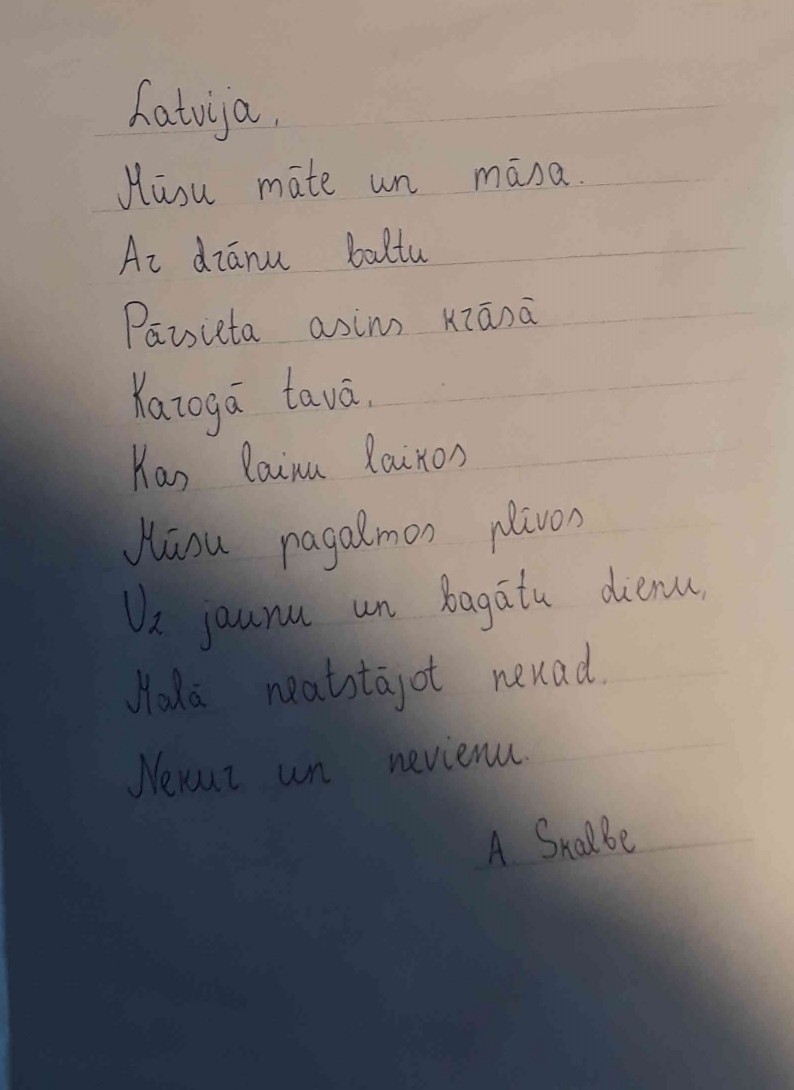 Latvija,
Mūsu māte un māsa.
Ar drānu baltu
Pārsieta asins krāsā
Karogā tavā,
Kas laiku laikos
Mūsu pagalmos plīvos
Uz jaunu un bagātu dienu,
Malā neatstājot nekad.
Nekur un nevienu.
A Skalbe